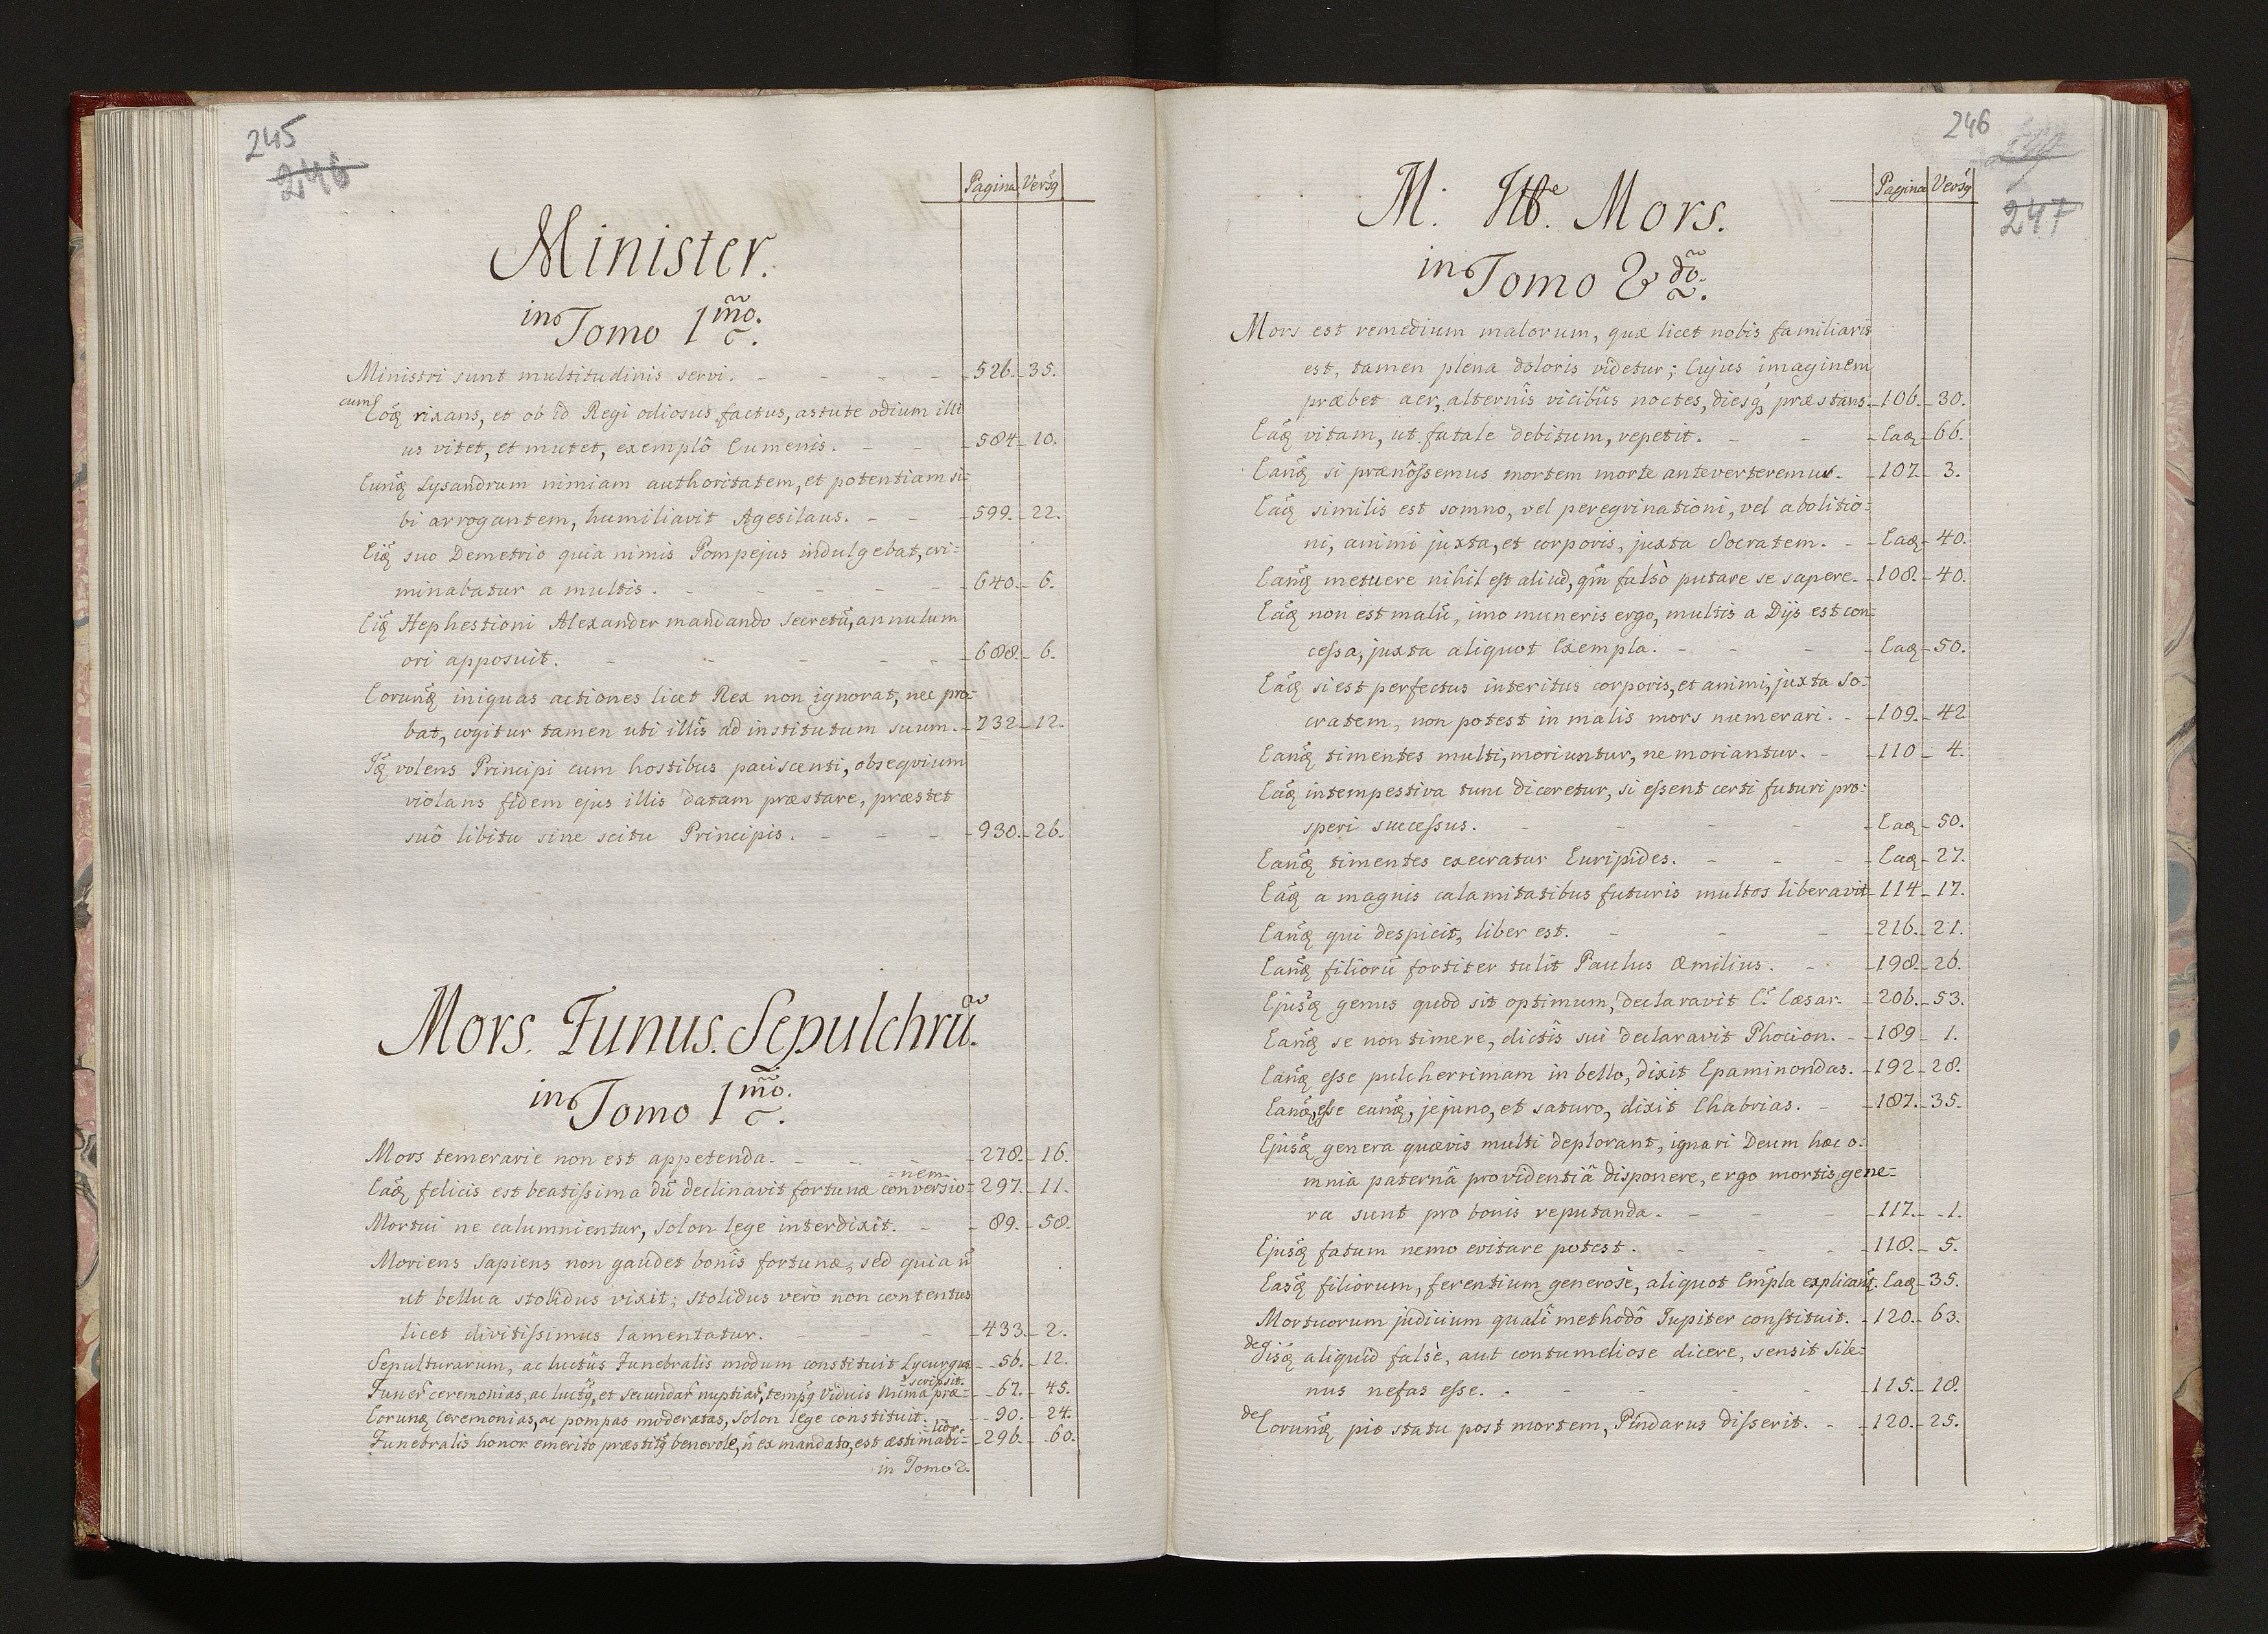 245
246
Pagina Versq
Minister.
in Tomo 1mo.
Ministri sunt multitudinis servi. - 526. 35.
cum Eoq rixans, et ob id Regi odiosus factus, astute odium illi
us vitet, et mutet, exemplô Eumenis. - 584. 10.
Eunq Lysandrum nimiam authoritatem, et potentiam si=
bi arrogantem, humiliavit Agesilaus. - 599. 22.
Eiq suo Demetrio quia nimis Pompejus indulgebat, cri=
minabatur a multis. - 640. 6.
Eiq Hephestioni Alexander mandando secretũ, annulum
ori apposuit. - 688. 6.
Eorunq iniquas actiones licet Rex non ignorat, nec pro=
bat, cogitur tamen uti illis ad institutum suum. - 732. 12.
Iq volens Principi cum hostibus paciscenti, obseqvium
violans fidem ejus illis datam præstare, præstet
suô libitu sine scitu Principis. - 930. 26.
Mors. Funus. Sepulchrũ.
in Tomo 1mo.
Mors temerarie non est appetenda. - 278. 16.
=nem
Eaq felicis est beatissima dũ declinavit fortunæ conversio= 297. 11.
Mortui ne calumnientur, Solon lege interdixit. - 89. 58.
Moriens Sapiens non gaudet bonis fortunæ, sed quia ñ
ut bellua stolidus vixit; stolidus verò non contentus
licet divitissimus lamentatur. - 433. 2.
Sepulturarum, ac luctûs Funebralis modum constituit Lycurgus - 56. 12.
scripsit.
Funer ceremonias, ac luctq, et secundar nuptiar, tempq viduis Numa præ= - 67. 45.
Eorunq ceremonias, ac pompas moderatas, Solon lege constituit. - 90. 24.
=lior.
Funebralis honor emerito præstitq benevole, ñ ex mandato, est æstimabi= - 296. 60.
in Tomo 2.
246
247
Pagina Versq
M. Mors.
in Tomo 2do.
Mors est remedium malorum, quæ licet nobis familiaris
est, tamen plena doloris videtur; Cujus imaginem
præbet aer, alternis vicibus noctes, diesq præstans. - 106. 30.
Eaq vitam, ut fatale debitum, repetit. - Eaq 66.
Eanq si prænôssemus mortem morte anteverteremus. - 107. 3.
Eaq similis est somno, vel peregrinationi, vel abolitio=
ni, animi juxta, et corporis, juxta Socratem. - Eaq 40.
Eanq metuere nihil est aliud, qm falsò putare se sapere. - 108. 40.
Eaq non est malũ, imo muneris ergo, multis a Dijs est con=
cessa, juxta aliquot Exempla. - Eaq 50.
Eaq si est perfectus interitus corporis, et animi, juxta So=
cratem, non potest in malis mors numerari. - 109. 42
Eanq timentes multi, moriuntur, ne moriantur. - 110 4.
Eaq intempestiva tunc diceretur, si essent certi futuri pro=
speri successus. - Eaq 50.
Eanq timentes execratur Euripides. - Eaq 27.
Eaq a magnis calamitatibus futuris multos liberavit 114 17.
Eanq qui despicit, liber est. - 216. 21.
Eanq filiorũ fortiter tulit Paulus Æmilius. - 198. 26.
Ejusq genus quod sit optimum, declaravit C. Cæsar. - 206. 53.
Eanq se non timere, dictis sui declaravit Phocion. - 189 1.
Eanq esse pulcherrimam in bello, dixit Epaminondas. - 192 28.
Eanq, esse eanq, jejuno, et saturo, dixit Chabrias. - 187. 35.
Ejusq genera quævis multi deplorant, ignari Deum hæc o=
mnia paternâ providentiâ disponere, ergo mortis gene=
ra sunt pro bonis reputanda. - 117. 1.
Ejusq fatum nemo evitare potest. - 118. 5.
Easq filiorum, ferentium generosè, aliquot Empla explicant. Eaq 35.
Mortuorum judicium quali methodô Jupiter constituit. - 120. 63.
de Iisq aliquid falsè, aut contumeliose dicere, sensit Sile=
nus nefas esse. - 115. 18.
de Eorunq pio statu post mortem, Pindarus disserit. - 120. 25.